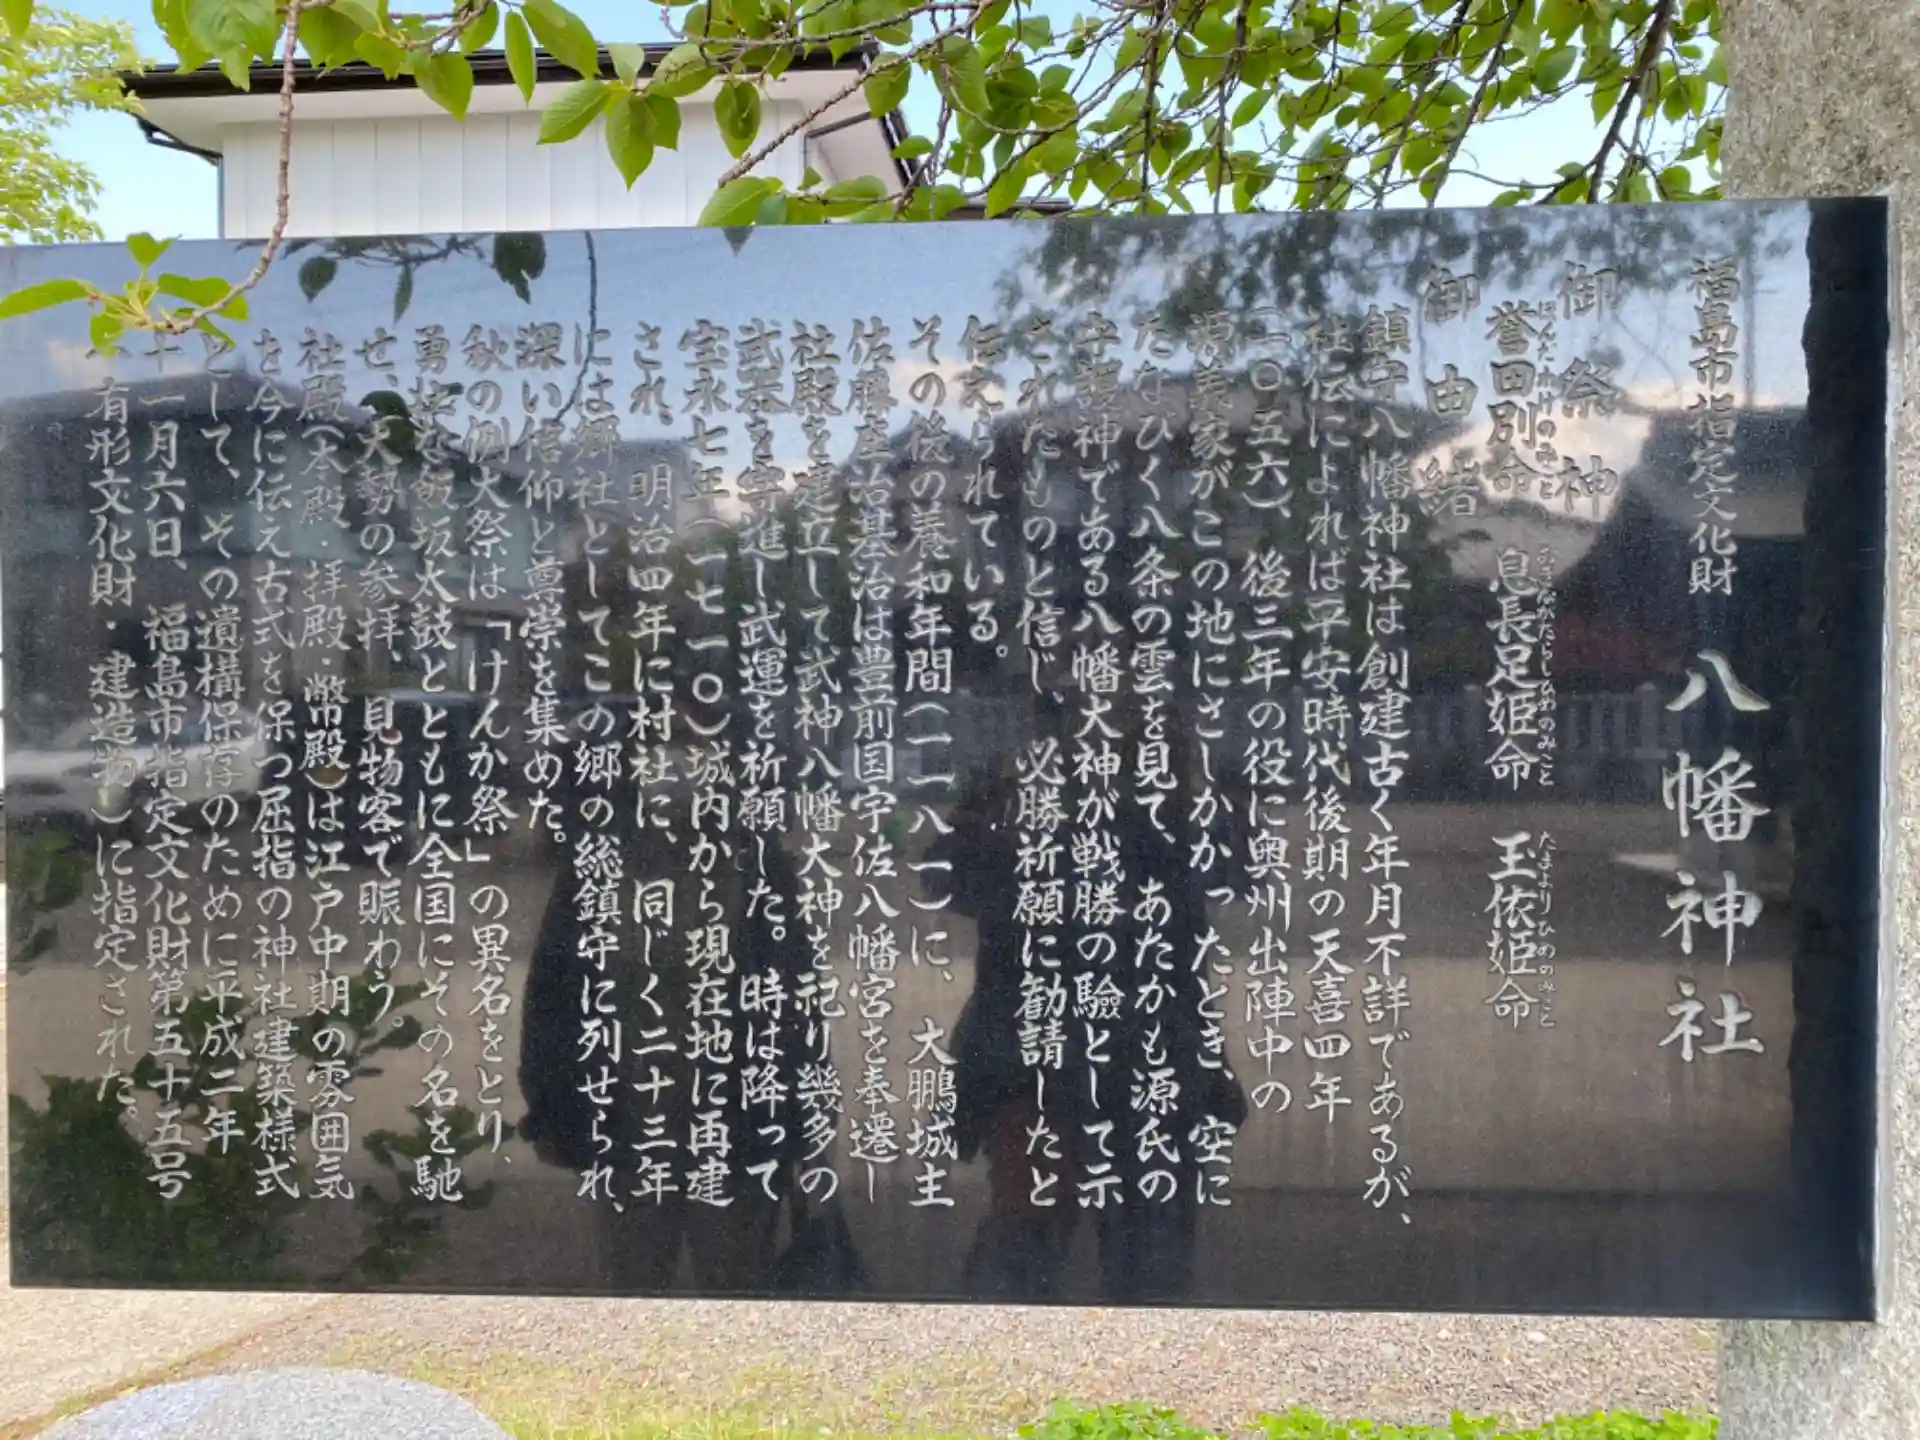 福島市指定文化財 八幡神社
御祭神
誉田別命 息長足姫命 玉依姫命
ほんたわけのみこと おきながたらしひめのみこと たまよりひめのみこと
御由緒
鎮守八幡神社は創建古く年月不詳であるが、
社伝によれば平安時代後期の天喜四年
(一〇五六)、後三年の役に奥州出陣中の
源義家がこの地にさしかかったとき、空に
たなびく八条の雲を見て、あたかも源氏の
守護神である八幡大神が戦勝の驗として示
されたものと信じ、必勝祈願に勧請したと
伝えられている。
その後の養和年間(一一八一)に、大鵬城主
佐藤庄治基治は豊前国宇佐八幡宮を奉遷し
社殿を建立して武神八幡大神を祀り幾多の
武器を寄進し武運を祈願した。時は降って
宝永七年(一七一〇)城内から現在地に再建
され、明治四年に村社に、同じく二十三年
には郷社としてこの郷の総鎮守に列せられ、
深い信仰と尊崇を集めた。
秋の例大祭は「けんか祭」の異名をとり、
勇壮な飯坂太鼓とともに全国にその名を馳
せ、大勢の参拝、見物客で賑わう。
社殿(本殿・拝殿・幣殿)は江戸中期の雰囲気
を今に伝え古式を保つ屈指の神社建築様式
として、その遺構保存のために平成二年
十一月六日、福島市指定文化財第五十五号
有形文化財・建造物)に指定された。